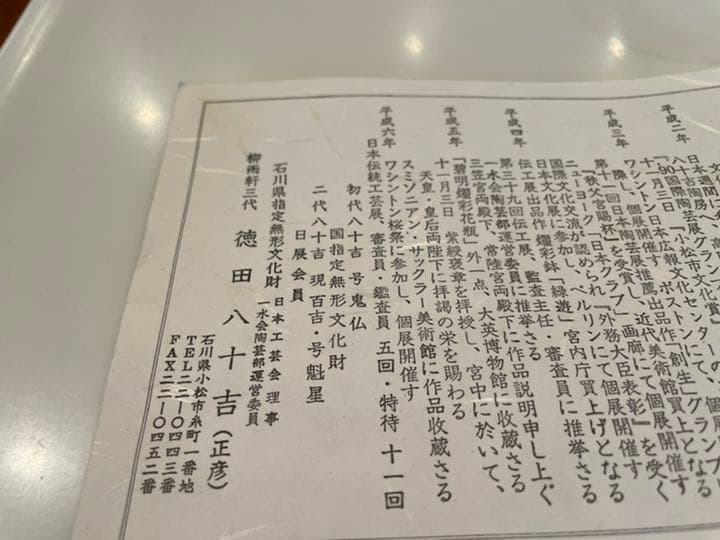 平成二年
日本陶芸展
八十吉国際陶芸展、「小松市文化センター
「90国展」
十一月 ワシントン日本広報文化センター、ボストンにて個展開催す
平成三年
第十一回日本陶芸展推薦出品作「創生」グランプリ
「秩父宮賜杯」を受賞し、近代美術館買上となる
ニューヨーク「日本クラブ」画廊にて個展開催す
国際文化交流が認められ「外務大臣表彰」を受く
日本文化展に参加し、ベルリンにて個展開催す
伝工展出品作 燿彩鉢「緑遊」宮内庁買上げとなる
平成四年
第三十九回伝工展、監査主任・審査員に推挙さる
一水会陶芸部運営委員に推挙さる
三笠宮両殿下、常陸宮両殿下に作品説明申し上ぐ
平成五年
「碧明燿彩花瓶」外一点、大英博物館に収蔵さる
十一月三日 紫綬褒章を拝授し、宮中に於いて、
天皇・皇后両陛下に拝謁の栄を賜わる
スミソニアン・サックラー美術館に作品収蔵さる
平成六年
ワシントン桜祭に参加し、個展開催す
日本伝統工芸展、審査員・鑑査員 五回・特待 十一回
初代八十吉 号鬼仏
国指定無形文化財
二代八十吉 現百吉・号魁星
日展会員
石川県指定無形文化財
日本工芸会理事
一水会陶芸部運営委員
柳雨軒三代 徳田八十吉(正彦)
石川県小松市糸町一番地
TEL二二-〇四四三番
FAX二二-〇四五二番